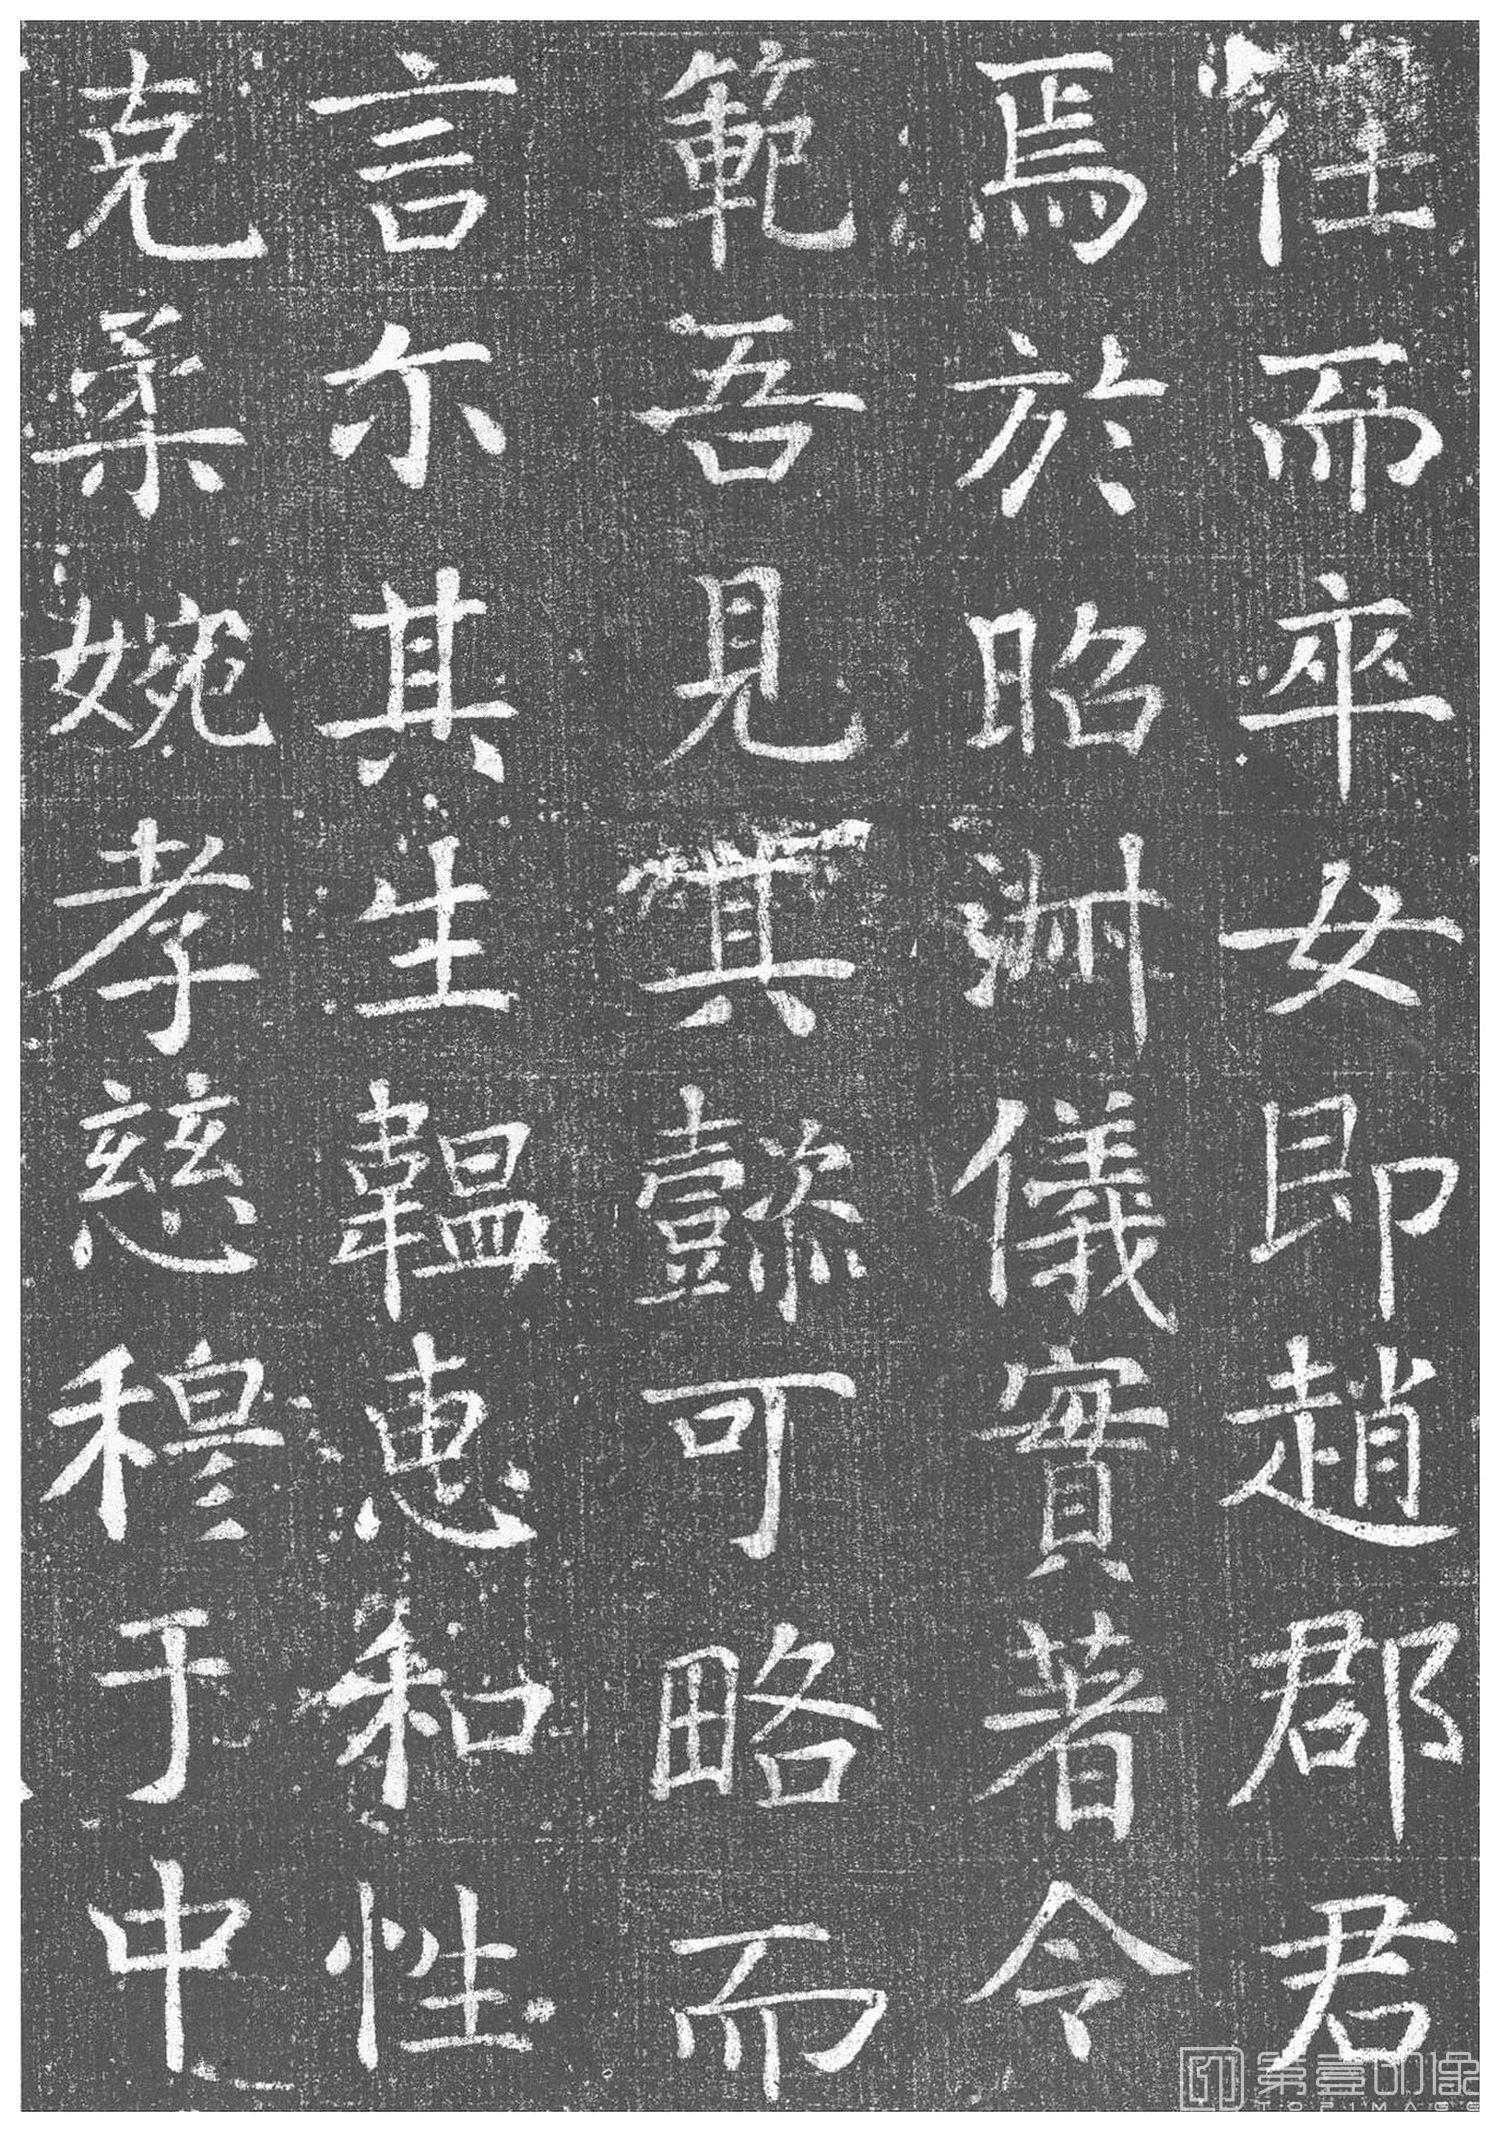 往而卒女即趙郡君
焉於昭淋儀實著令
範吾見其懿可略而
言尒其生韞惠和性
克柔婉孝慈穆于中
第壹印像
TOPIMAGE